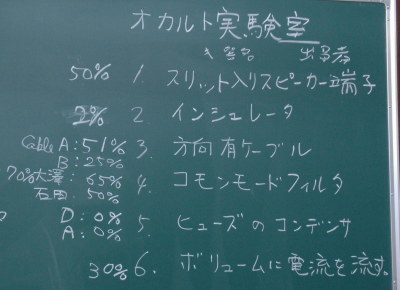 オカルト実験室
出力者
50% 1. スリット入りスピーカー端子
2% 2 インシュレータ
Cable A:51% 3. 方向有ケーブル
B:25%
70%大澤:65% 4. コモンモードフィルタ
石田:50%
D:0% 5. ヒューズのコンデンサ
A:0%
30% 6. ボリュームに電流を流す。